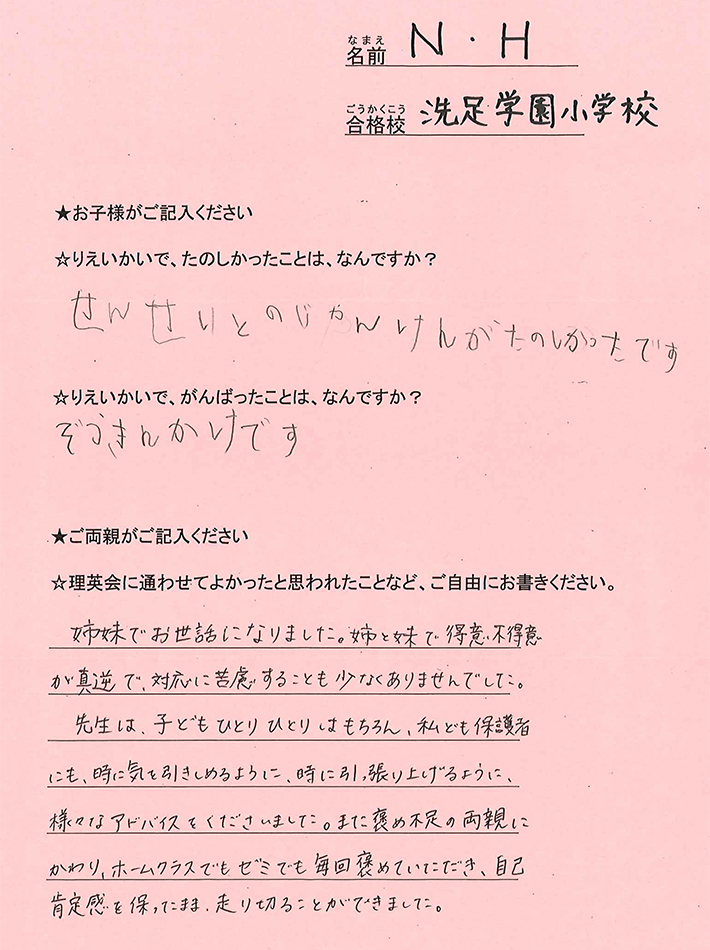 なまえ
名前 N・H
ごうかくこう
合格校 洗足学園小学校
★お子様がご記入ください
☆りえいかいで、たのしかったことは、なんですか？
せんせいとのじゃんけんがたのしかったです
☆りえいかいで、がんばったことは、なんですか？
ぞうきんかけです
★ご両親がご記入ください
☆理英会に通わせてよかったと思われたことなど、ご自由にお書きください。
姉妹でお世話になりました。姉と妹で得意、不得意
が真逆で、対応に苦慮することも少なくありませんでした。
先生は、子どもひとりひとりはもちろん、私ども保護者
にも、時に気を引きしめるように、時に引っ張り上げるように、
様々なアドバイスをくださいました。また褒め不足の両親に
かわり、ホームクラスでもゼミでも毎回褒めていただき、自己
肯定感を保ったまま、走り切ることができました。